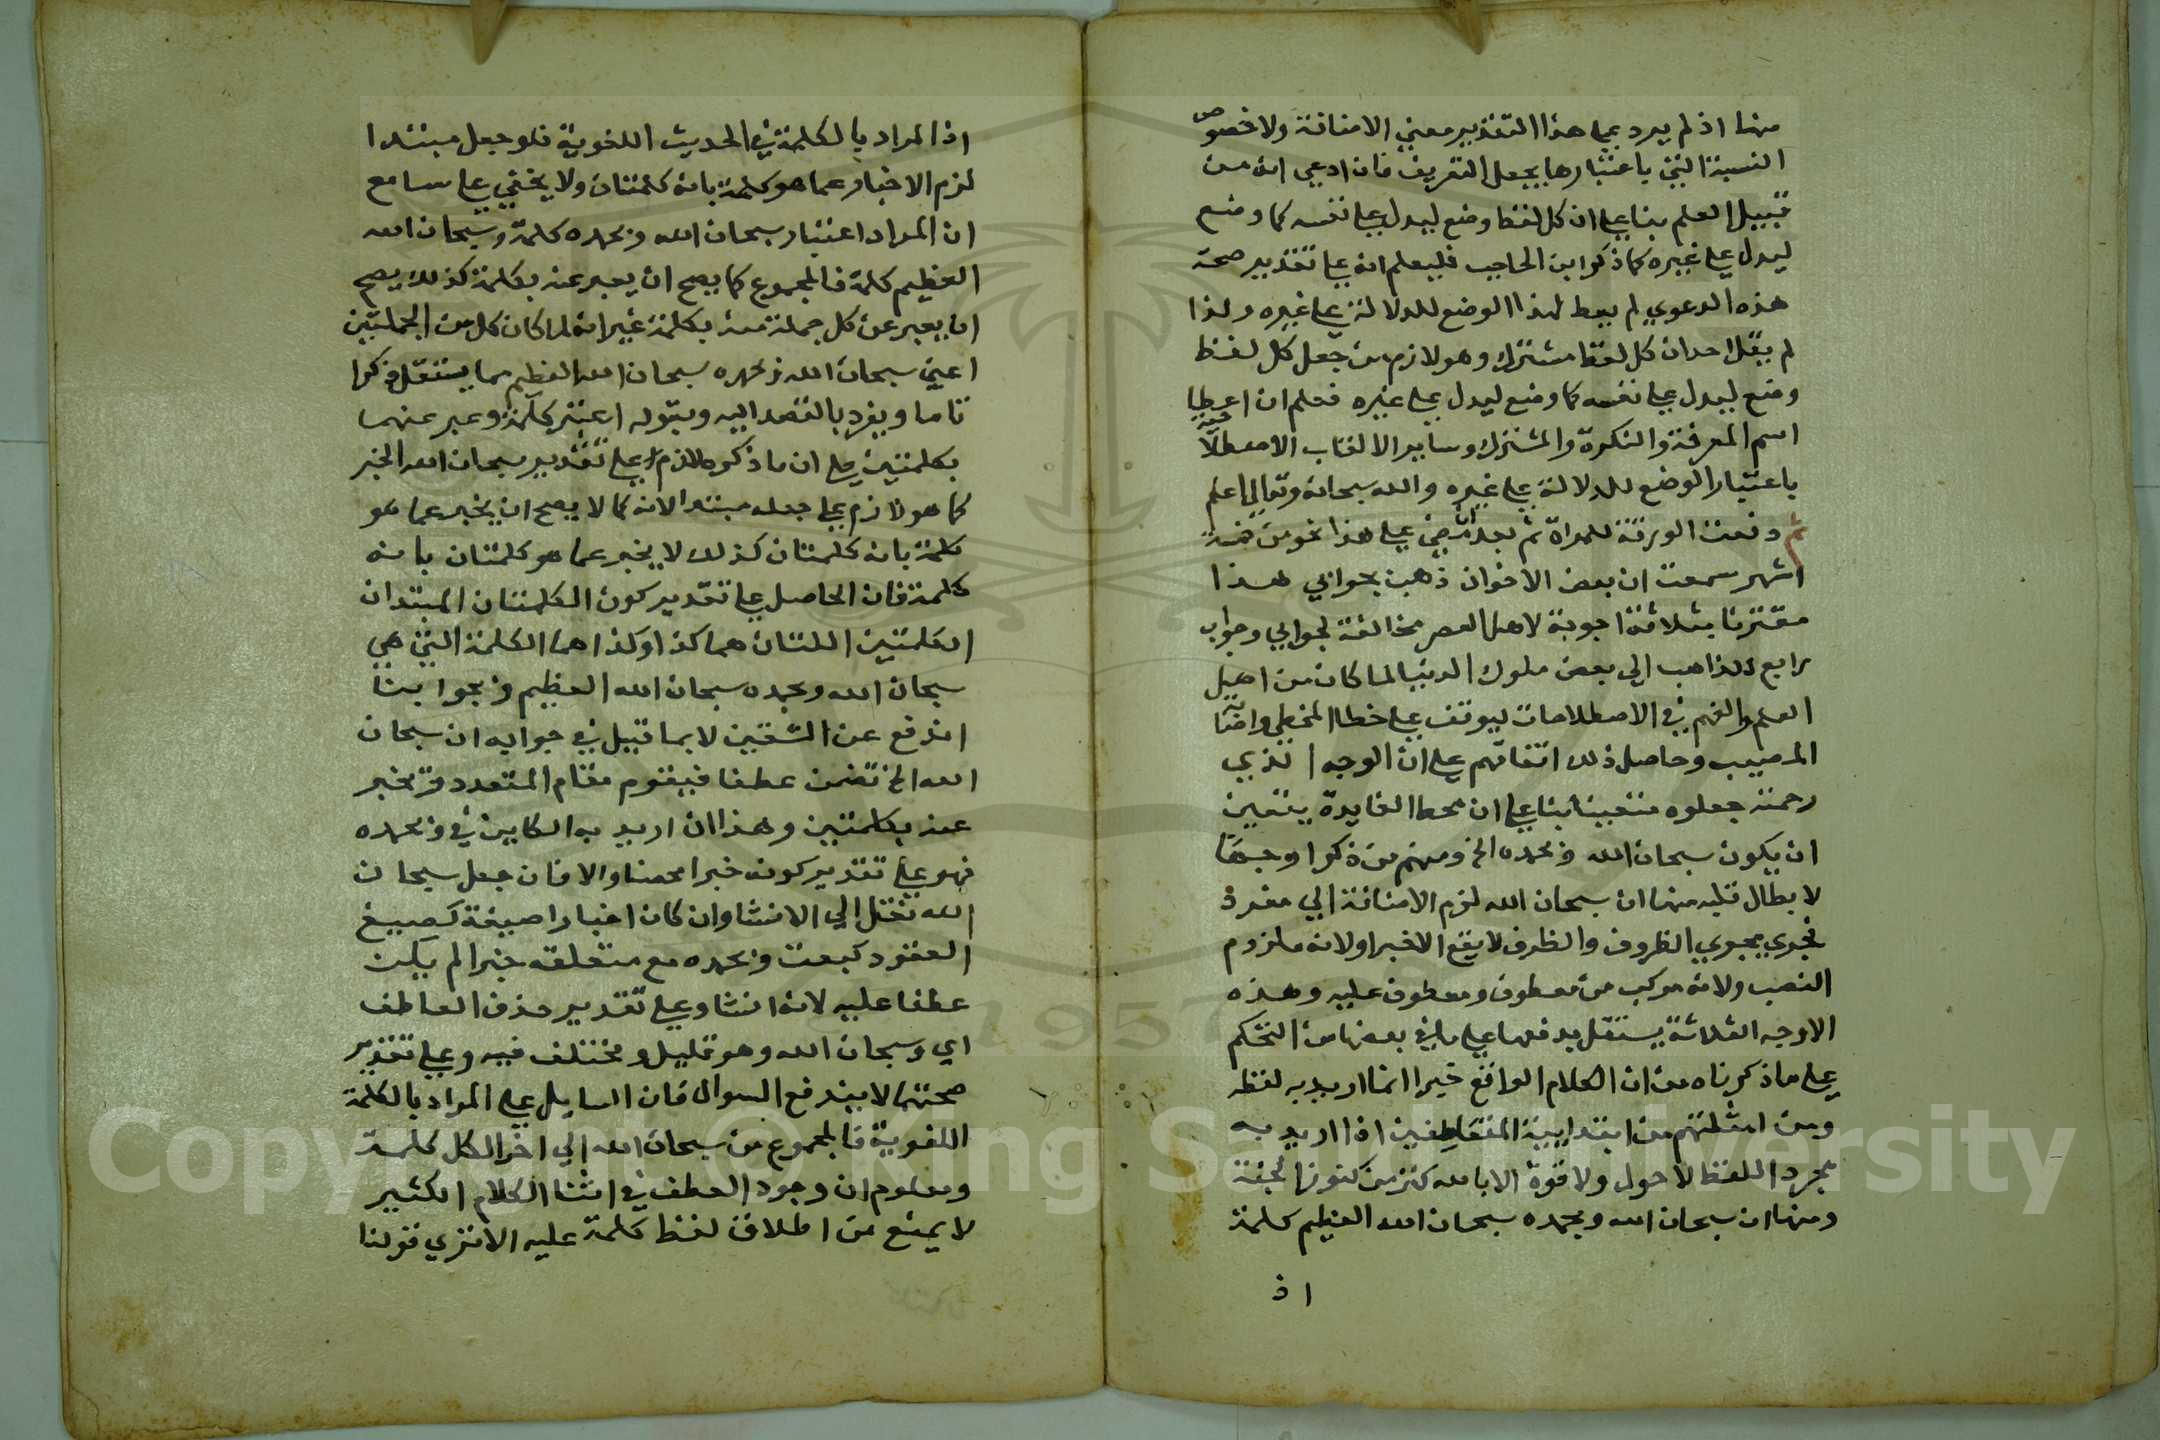 منها اذ لم يرد على هذا التقدير معنى الاضافة ولا خصوص
النسبة التي باعتبارها يجعل التعريف فان ادعى انه من
قبيل العلم بنا على ان كل لفظ وضع ليدل على نفسه كما وضع
ليدل على غيره كما ذكر ابن الحاجب فليعلم انه على تقدير صحة
هذه الدعوي لم يعط لهذا الوضع للدلالة على غيره ولذا
لم يقل احد ان كل لفظ مشترك وهو لازم من جعل كل لفظ
وضع ليدل على نفسه كما وضع ليدل على غيره فعلم ان اعطا
اسم المعرفة والنكرة والمشترك وساير الالقاب الاصطلاحية
باعتبار الوضع للدلالة على غيره والله سبحانه وتعالى اعلم
ثم دفعت الورقة للمراة ثم بعد ان مضى على هذا نحو من خمسة
اشهر سمعت ان بعض الاخوان ذهب بجوابي هذا
مقترنا بثلاثة اجوبة لاهل العصر مخالفة لجوابي وجواب
رابع للذاهب الي بعض ملوك الدنيا لما كان من اهل
العلم والفهم في الاصطلاحات ليوقف على خطا المخطي واصابة
المصيب وحاصل ذلك اتفاقهم على ان الوجه الذي
رحمته جعلوه متعينا بنا على ان محط الفايدة يتعين
ان يكون سبحان الله وبحمده الخ ومنهم من ذكر اوجها
لابطال قلبه منها ان سبحان الله لزم الاضافة الي مفرد
فجري مجري الظروف والظرف لا يقع الا خبرا ولانه ملزوم
النصب ولانه مركب من معطوف ومعطوف عليه وهذه
الاوجه الثلاثة يستقل بدفعها على ما في بعضها من التحكم
على ما ذكرناه من ان الكلام الواقع خبرا انما اريد به لفظه
ومن امثلتهم من ابتدايية المتعاطفين اذا اريد به
مجرد اللفظ لا حول ولا قوة الا بالله كنز من كنوز الجنة
ومنها ان سبحان الله وبحمده سبحان الله العظيم كلمة
اذ
اذ المراد بالكلمة في الحديث اللغوية فلو جعل مبتدا
لزم الاخبار عما هو كلمة بانه كلمتان ولا يخفي على سامع
ان المراد اعتبار سبحان الله وبحمده كلمة وسبحان الله
العظيم كلمة فالمجموع كما يصح ان يعبر عنه بكلمة كذلك يصح
ان يعبر عن كل جملة منه بكلمة غير انه لما كان كل من الجملتين
اعني سبحان الله وبحمده سبحان الله العظيم مما يستقل ذكرا
تاما ويفرد بالقصد اليه وبقوله اعتبر كلمة وعبر عنهما
بكلمتين على ان ما ذكره لازم على تقدير سبحان الله الخبر
كما هو لازم على جعله مبتدا لانه كما لا يصح ان يخبر عما هو
كلمة بانه كلمتان كذلك لا يخبر عما هو كلمتان بانه
كلمة فان الحاصل على تقدير كون الكلمتان المبتدا ان
الكلمتين اللتان هما كذا وكذا هما الكلمة التي هي
سبحان الله وبحمده سبحان الله العظيم وبجوابنا
اندفع عن الشقين لا بما قيل في جوابه ان سبحان
الله الخ تضمن عطفا فيقوم مقام المتعدد فيخبر
عنه بكلمتين وهذا ان اريد به الكاين في وبحمده
فهو على تقدير كونه خبرا محضا والا فان جعل سبحان
الله نقل الي الانشا وان كان اخبارا صيغة كصيغ
العقود كبعت وبحمده مع متعلقه خبرا لم يكن
عطفا عليه لانه انشا وعلى تقدير حذف العاطف
اي وسبحان الله وهو قليل ومختلف فيه وعلى تقدير
صحتها لا يندفع السوال فان السايل على المراد بالكلمة
اللغوية فالمجموع من سبحان الله الي اخر الكل كلمة
ومعلوم ان وجود العطف في اثنا الكلام الكثير
لا يمنع من اطلاق لفظ كلمة عليه الا تري قولنا
Copyright © King Saud University
1957